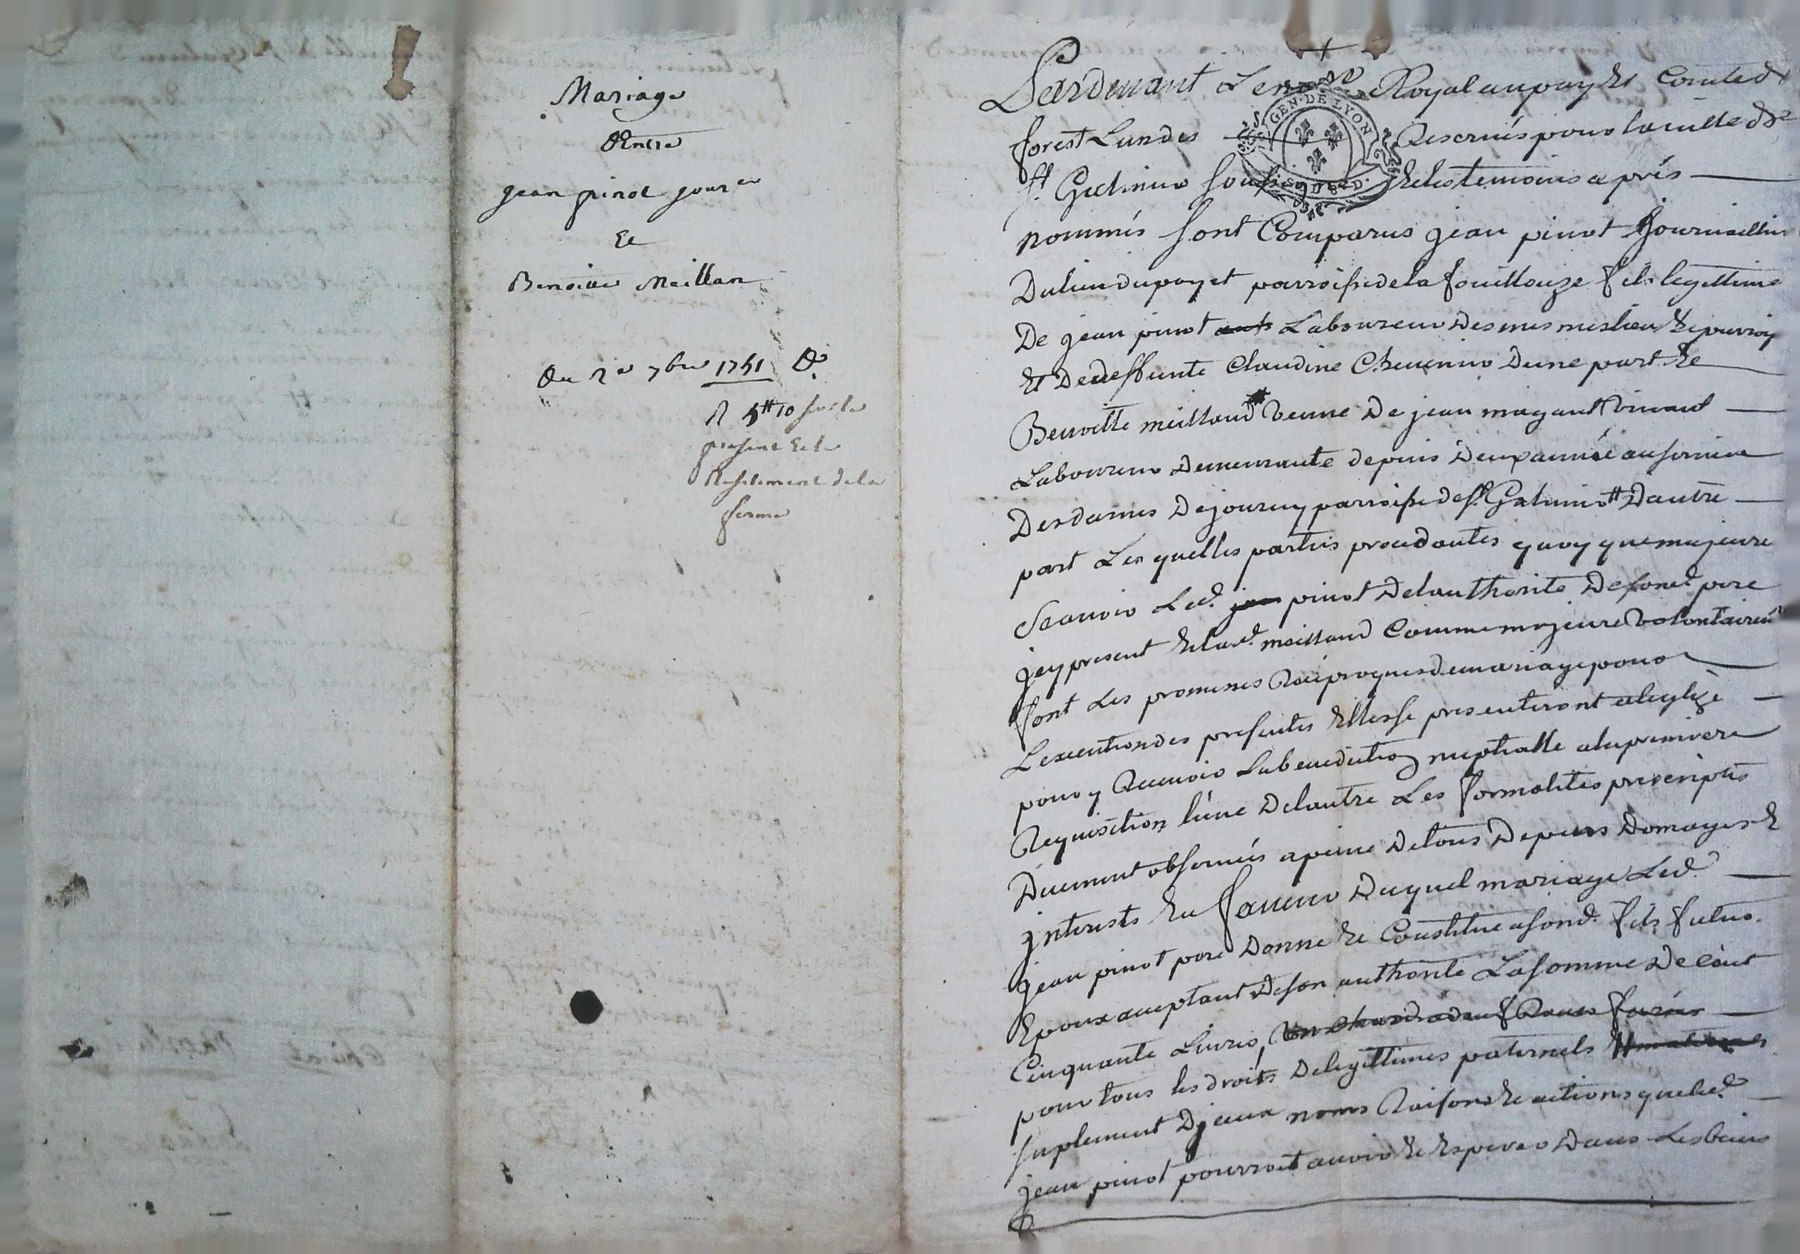 Mariage
Entre
jean pinot jour.er
Et
Benoitte Meillan
Du 2e 7bre 1751
sur le
present Et le
Resiliment de la
ferme
Pardevant Le no.re Royal au pay Et Comté de
forest Lun des Reservés pour la ville de
St Galmier soussigné Et les temoins après
nommés sont Comparus jean pinot journaillier
Du lieu du poyet parroisse de la fouillouze fils legittime
De jean pinot Laboureur Des mesmes lieu Et parroisse
Et De deffunte Claudine Chevenier Dune part Et
Benoitte meilland veuve De jean magand vivant
Laboureur Demeurante depuis Deux année au servive
Des dames De joursey parroisse de St Galmier D'autre
part Les quelles parties procedantes quoy que majeure
Scavoir Led. pinot De lauthorité De sond. pere
jcy present Et lad. meilland Comme majeure volontairemt
font Les promesses Reciproques de mariage pour
Lexecution des presentes Elles se presenteront a leglize
pour y Recevoir La benediction nuptialle a la premiere
Requisition Lune De lautre Les formalites prescriptes
Duement observées a peine De tous Depens Domages Et
jnterests En faveur Duquel mariage Led.
jean pinot pere Donne Et Constitue a sond. fils futur
Epoux acceptant De son authorité La somme De cent
Cinquante Livres
pour tous les droits De legittimes paternels
suplement D'jceux noms Raisons Et actions que led.
jean pinot pourroit avoir Et Esperer Dans Les biens
GEN. DE LYON